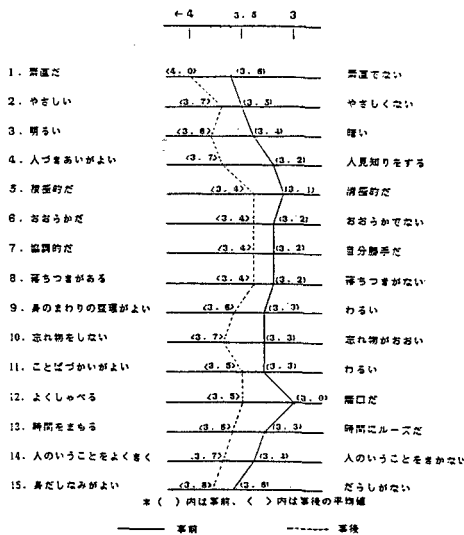 ←4 3.5 3
1. 素直だ <4.0> (3.6) 素直でない
2. やさしい <3.7> (3.5) やさしくない
3. 明るい <3.6> (3.4) 暗い
4. 人づきあいがよい <3.7> (3.2) 人見知りをする
5. 積極的だ <3.4> (3.1) 消極的だ
6. おおらかだ (3.2) おおらかでない
7. 協調的だ <3.4> (3.2) 自分勝手だ
8. 落ちつきがある <3.4> (3.2) 落ちつきがない
9. 身のまわりの整理がよい <3.6> (3.3) わるい
10. 忘れ物をしない <3.7> (3.3) 忘れ物がおおい
11. ことばづかいがよい <3.5> (3.3) わるい
12. よくしゃべる <3.5> (3.0) 無口だ
13. 時間をまもる <3.6> (3.3) 時間にルーズだ
14. 人のいうことをよくきく <3.7> 人のいうことをきかない
15. 身だしなみがよい <3.8> (3.6) だらしがない
*( )内は事前、< >内は事後の平均値
事前 事後